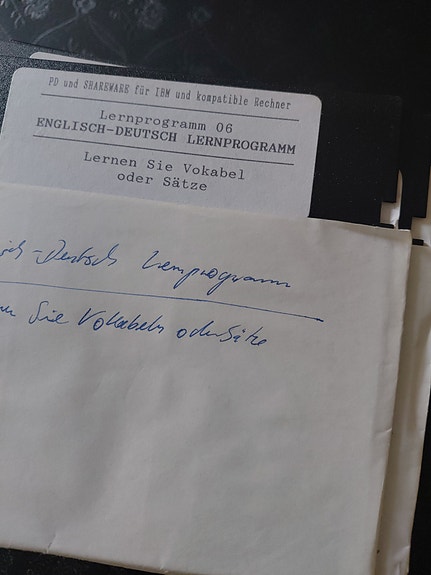 PD und SHAREWARE für IBM und kompatible Rechner
Lernprogramm 06
ENGLISCH-DEUTSCH LERNPROGRAMM
Lernen Sie Vokabel
oder Sätze
-Deutsch Lernprogramm
Sie Vokabeln oder Sätze